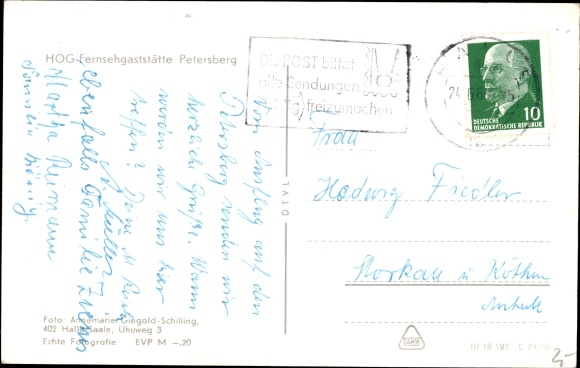 HOG-Fernsehgaststätte Petersberg
Die POST bittet
alle Sendungen
freizumachen
24.6.
10
DEUTSCHE
DEMOKRATISCHE REPUBLIK
Vom Ausflug auf den
Petersberg senden wir
herzliche Grüße. Wann
werden wir uns hier
treffen? Deine
Müller
ebenfalls Familie
Martha Neumann
DTVL
Frau
Hedwig Fiedler
Storkau ü Köthen
Anhalt
Foto: Annemarie Giegold-Schilling,
402 Halle Saale, Uhuweg 3
Echte Fotografie EVP M –.20
III 18-197